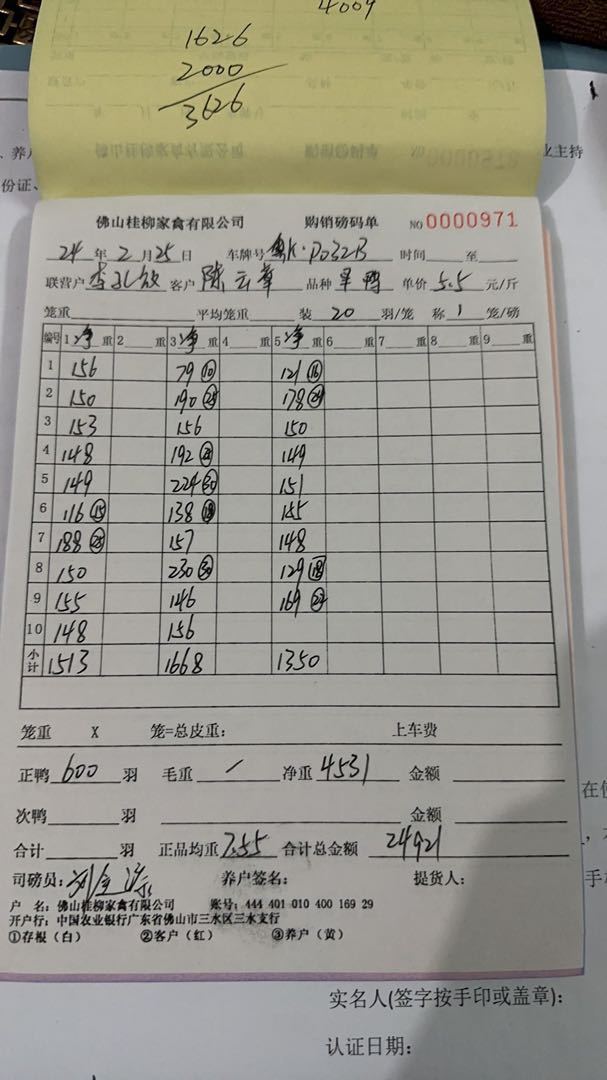 4009
1626
2000
3626
业主持
份证、
佛山桂柳家禽有限公司 购销磅码单 NO 0000971
24 年 2 月 25 日 车牌号 粤K·D032B 时间 至
联营户 客户 陈云华 品种 旱鸭 单价 5.5 元/斤
笼重: 平均笼重 装 20 羽/笼 称 1 笼/磅
编号 1 净 重 2 重 3 净 重 4 重 5 净 重 6 重 7 重 8 重 9 重
1 156 79 ⑩ 121 ⑯
2 150 190 178
3 153 156 150
4 148 192 149
5 149 224 ㉚ 151
6 116 ⑮ 138 ⑱ 155
7 188 ㉕ 157 148
8 150 230 ㉚ 129 ⑱
9 155 146 169
10 148 156
小计 1513 1668 1350
笼重 X 笼=总皮重: 上车费
正鸭 600 羽 毛重 / 净重 4531 金额
次鸭 羽 金额
合计 羽 正品均重 7.55 合计总金额 24921
司磅员: 养户签名: 提货人:
户 名: 佛山桂柳家禽有限公司 账号: 444 401 010 400 169 29
开户行: 中国农业银行广东省佛山市三水区三水支行
①存根(白) ②客户(红) ③养户(黄)
实名人(签字按手印或盖章):
认证日期: